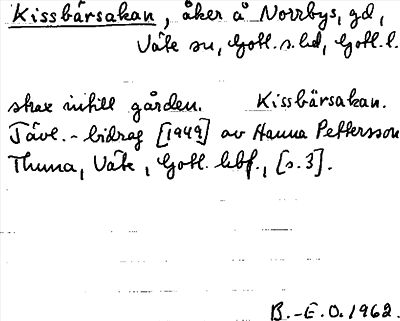 Kissbärsakan, åker å Norrbys, gd,
Väte sn, Gotl. s. hd, Gotl. l.
strax intill gården. Kissbärsakan.
Tävl.-bidrag [1949] av Hanna Pettersson
Thuna, Väte, Gotl. hbf., [s. 3].
B.-E.O. 1962.